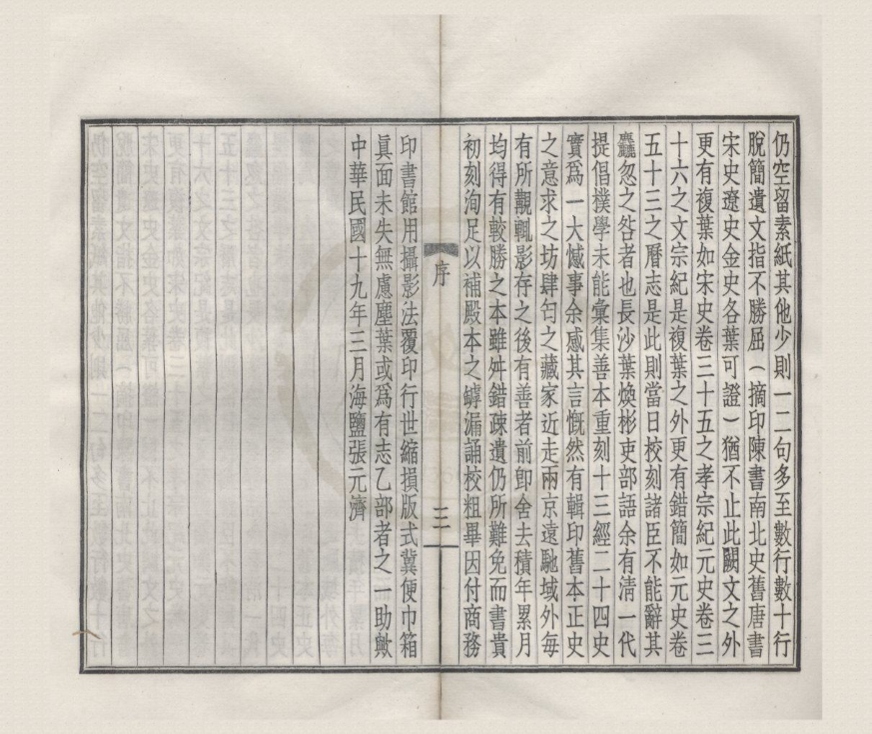 仍空留素紙其他少則一二句多至數行數十行
脫簡遺文指不勝屈（摘印陳書南北史舊唐書
宋史遼史金史各葉可證）猶不止此闕文之外
更有複葉如宋史卷三十五之孝宗紀元史卷三
十六之文宗紀是複葉之外更有錯簡如元史卷
五十三之曆志是此則當日校刻諸臣不能辭其
麤忽之咎者也長沙葉煥彬吏部語余有清一代
提倡樸學未能彙集善本重刻十三經二十四史
實爲一大憾事余感其言慨然有輯印舊本正史
之意求之坊肆匄之藏家近走兩京遠馳域外每
有所觀輒影存之後有善者前卽舍去積年累月
均得有較勝之本雖舛錯疎遺仍所難免而書貴
初刻洵足以補殿本之罅漏誦校粗畢因付商務
序
三
印書館用攝影法覆印行世縮損版式冀便巾箱
眞面未失無慮塵葉或爲有志乙部者之一助歟
中華民國十九年三月海鹽張元濟